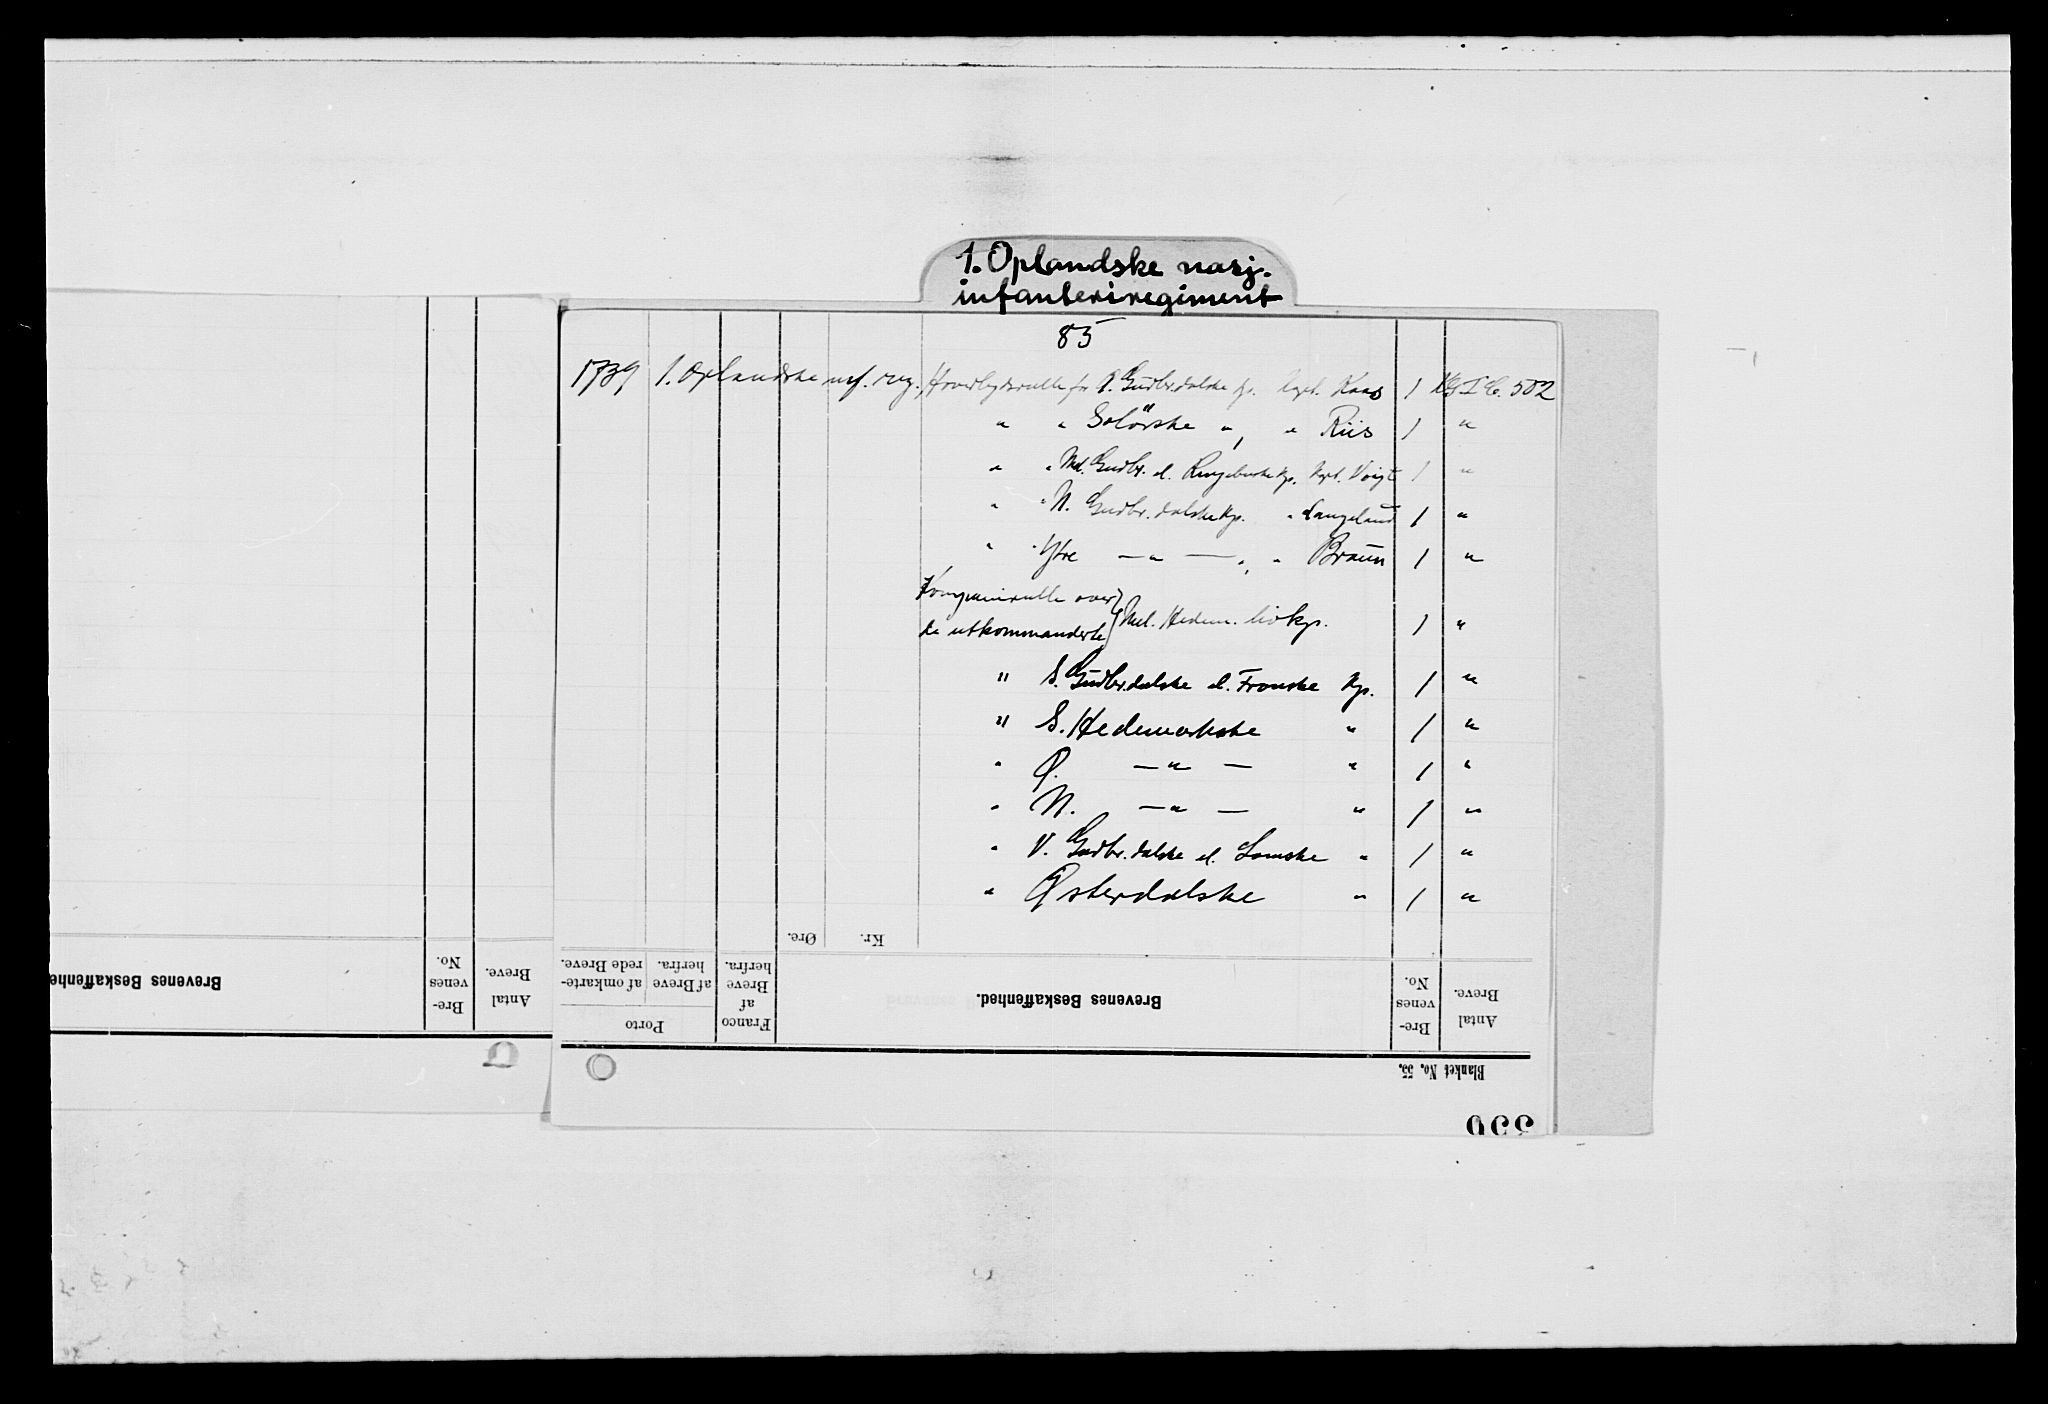 1. Oplandske nasj.
infanteriregiment
85
1739 1. Oplandske inf. reg. Hovedlydsrulle for Ø. Gudbr.dalske kp. Kapt. Kaas 1 KG I C. 502
" " Solørske ", " Riis 1 "
" " Gudbr. el. Ringebuske kp. Kapt. Voigt 1 "
" " N. Gudbr.dalske kp. " Langeland 1 "
" " Ytre — " — ", " Braun 1 "
Kompanirulle over
de utkommanderte } Hedem. livkp. 1 "
" S. Gudbr.dalske el. Fronske kp. 1 "
" S. Hedemarkske " 1 "
" Ø. — " — " 1 "
" N. — " — " 1 "
" V. Gudbr.dalske el. Lomske " 1 "
" Østerdalske " 1 "
Øre. Kr.
Porto
af omkarte-
rede Breve.
af Breve
herfra.
Franco
af
Breve
herfra.
Brevenes Beskaffenhed.
Bre-
venes
No.
Antal
Breve.
Blanket No. 55.
Brevenes Beskaffenhe
Bre-
venes
No.
Antal
Breve.